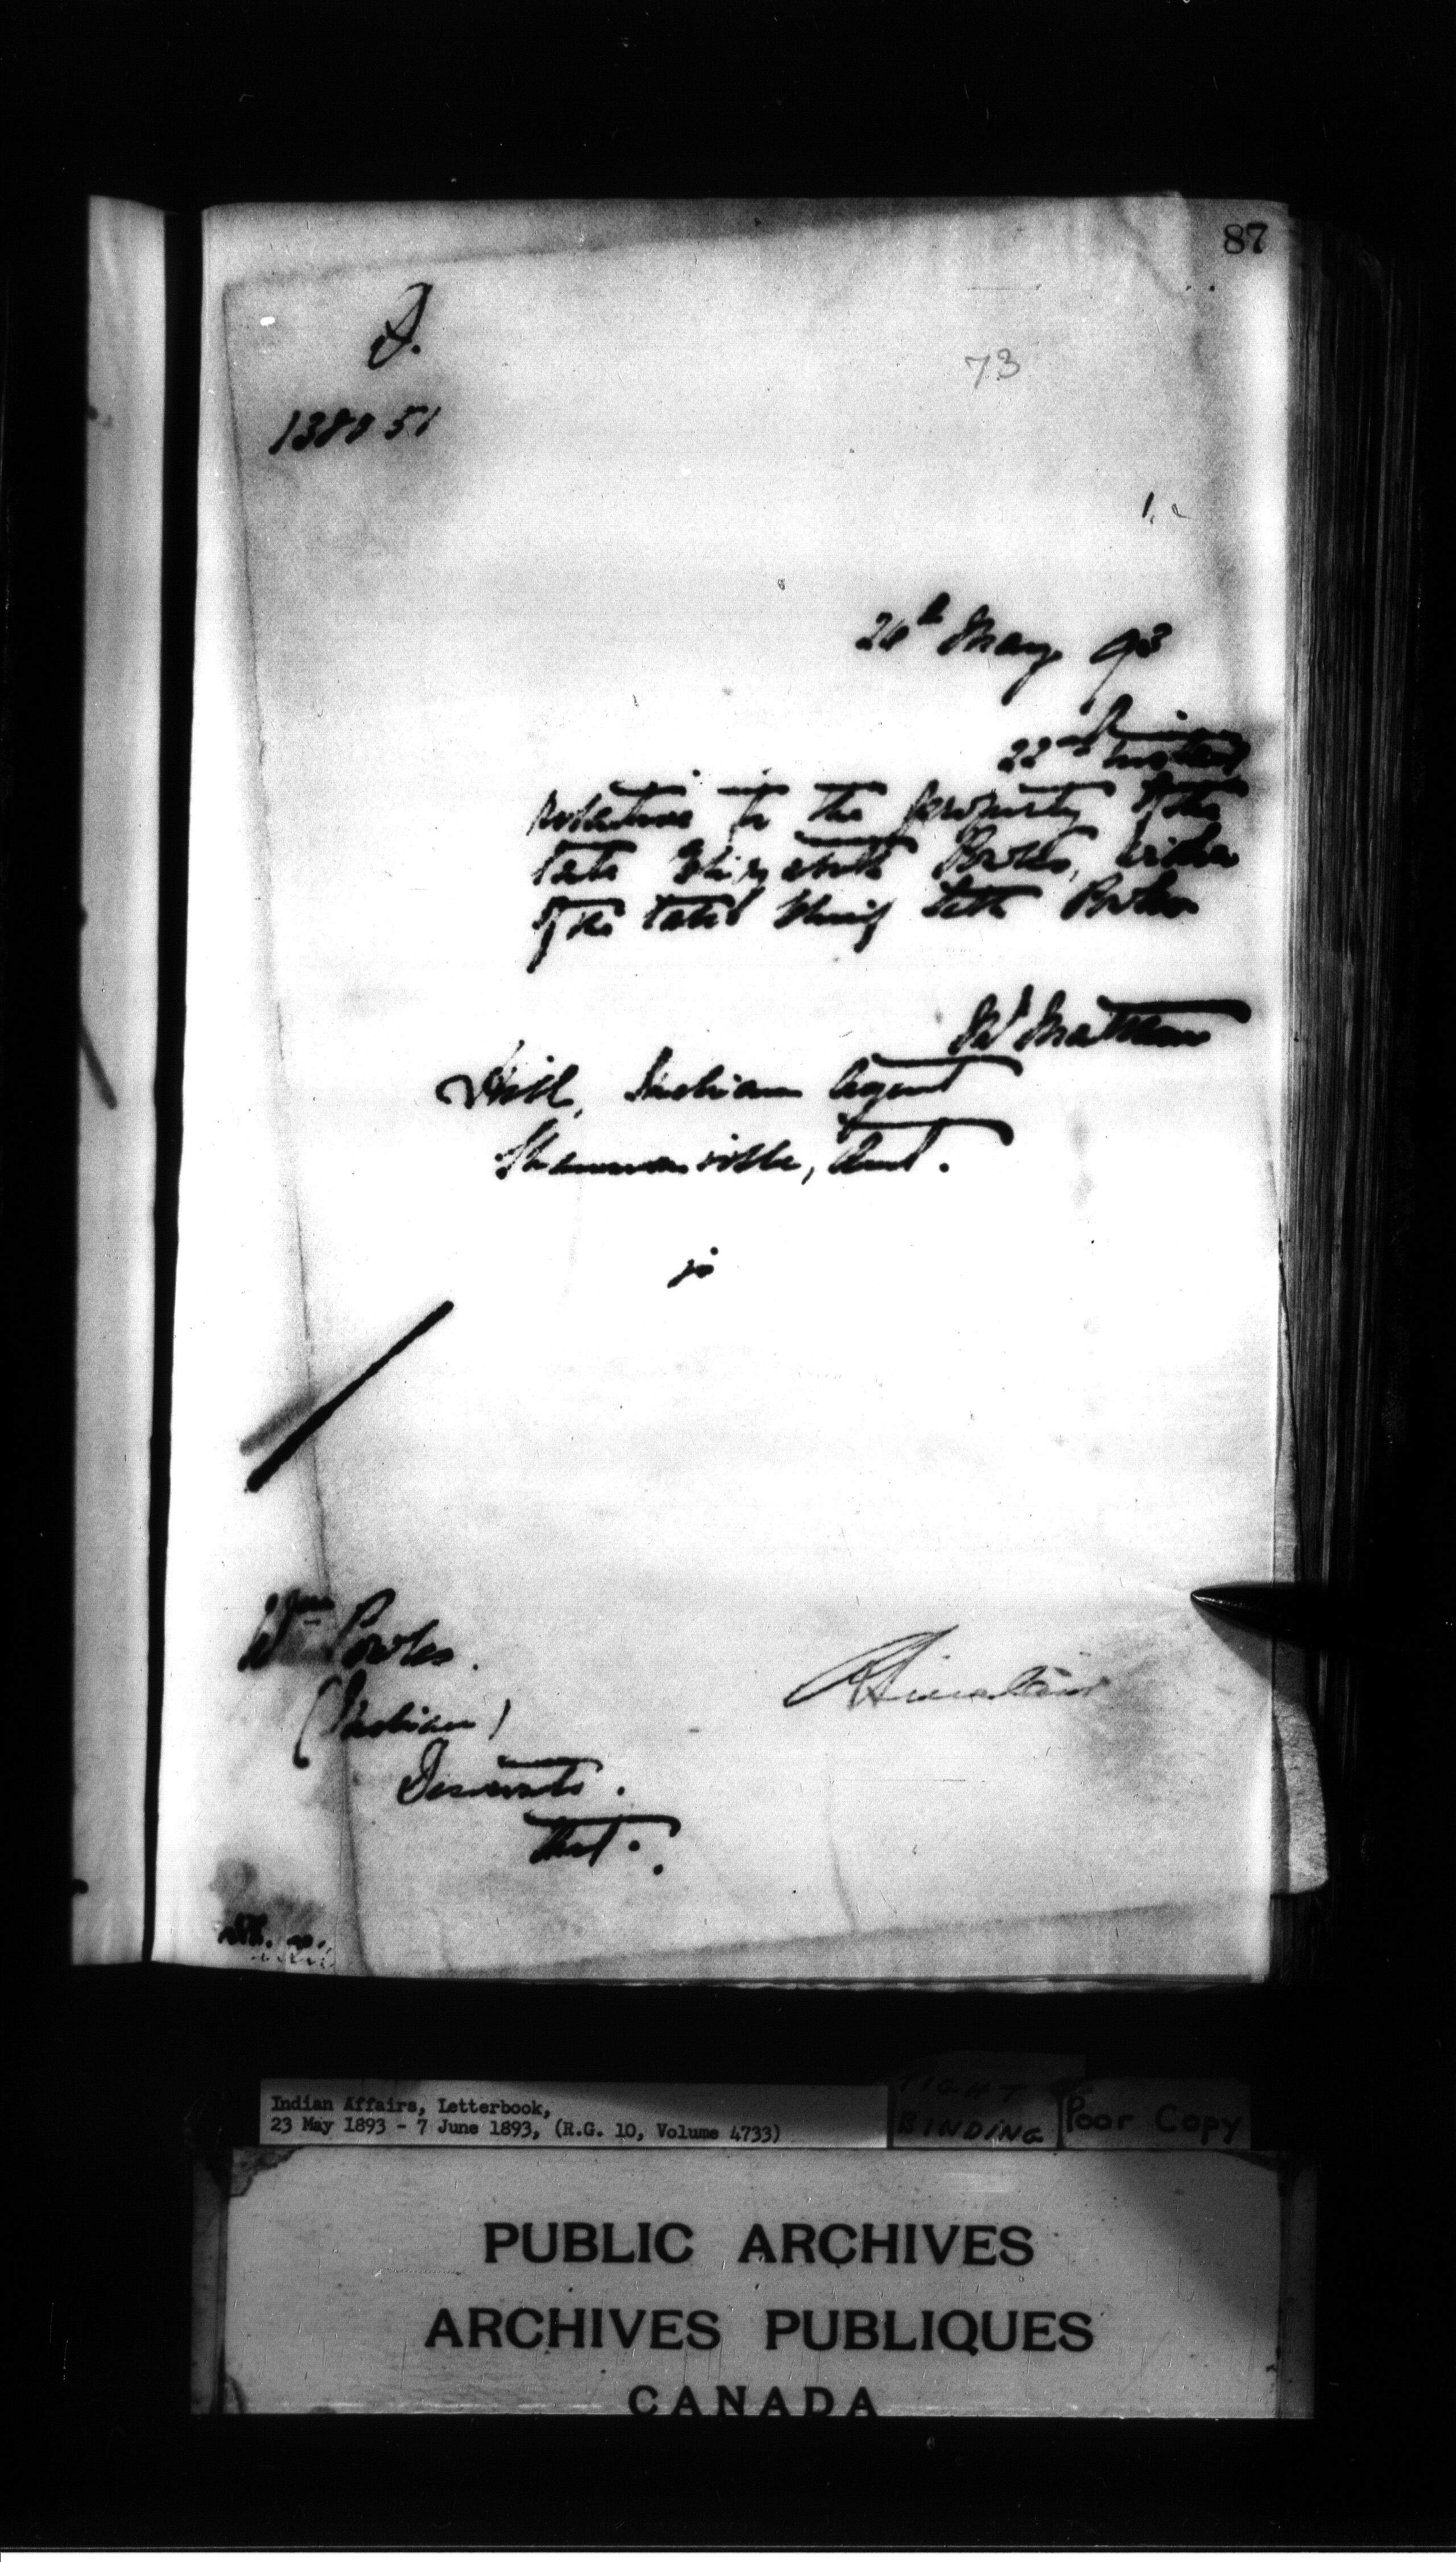 87
D.
73
138851
26th May 93
22nd instant
relative to the property of the
late Elizabeth Powles, widow
of the late Chief Seth Powles
Dr Matthew
Hill, Indian Agent
Shannonville, Ont.
Wm Powles.
(Indian)
Deseronto.
Ont.
R Sinclair
Indian Affairs, Letterbook,
23 May 1893 - 7 June 1893, (R.G. 10, Volume 4733)
TIGHT
BINDING
Poor Copy
PUBLIC ARCHIVES
ARCHIVES PUBLIQUES
CANADA